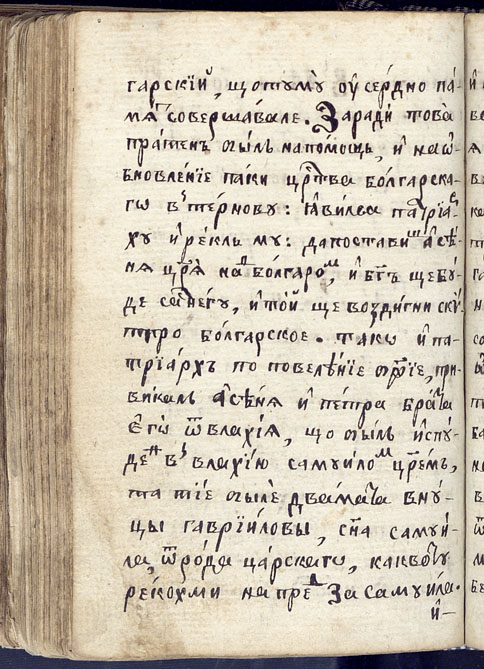 гарскїй, що тумꙋ̀ оусе́рдно па́-
мꙗⷮ соверша́вале. За ради̑ това̀
пра́тенъ быль на по́мощь, и҆ на ѡ҆-
бновле́нїе па́ки црⷭ҇тва бо́лгарска-
гѡ въ те́рнову: ꙗ҆вилса патрїаⷬ-
ху и҆ реклъ му: да поставишъ а҆сѣ́-
нѧ цр҃ѧ̀ наⷣ бо́лгароⷨ, и҆ бг҃ъ ще бу́-
де са негу, и҆ то́й ще воздигни скѵ́-
птро бо́лгарское. тако и҆ па-
трїа́рхъ по повелѣ́нїе ст҃ое, при-
викалъ асѣ́нѧ и҆ пе́тра бра́та
є҆гѡ̀ ѿ вла́хїѧ, що быль и҆спу́-
деⷩ въ вла́хїю самуилоⷨ цр҃емъ,
та тїе быле двамата вну́-
цы гаврїи́ловы, сн҃а самуи́-
ла, ѿ ро́да ца́рскагѡ, какво ту
реко́хми на преⷣ за самуи́ла.
и҆-